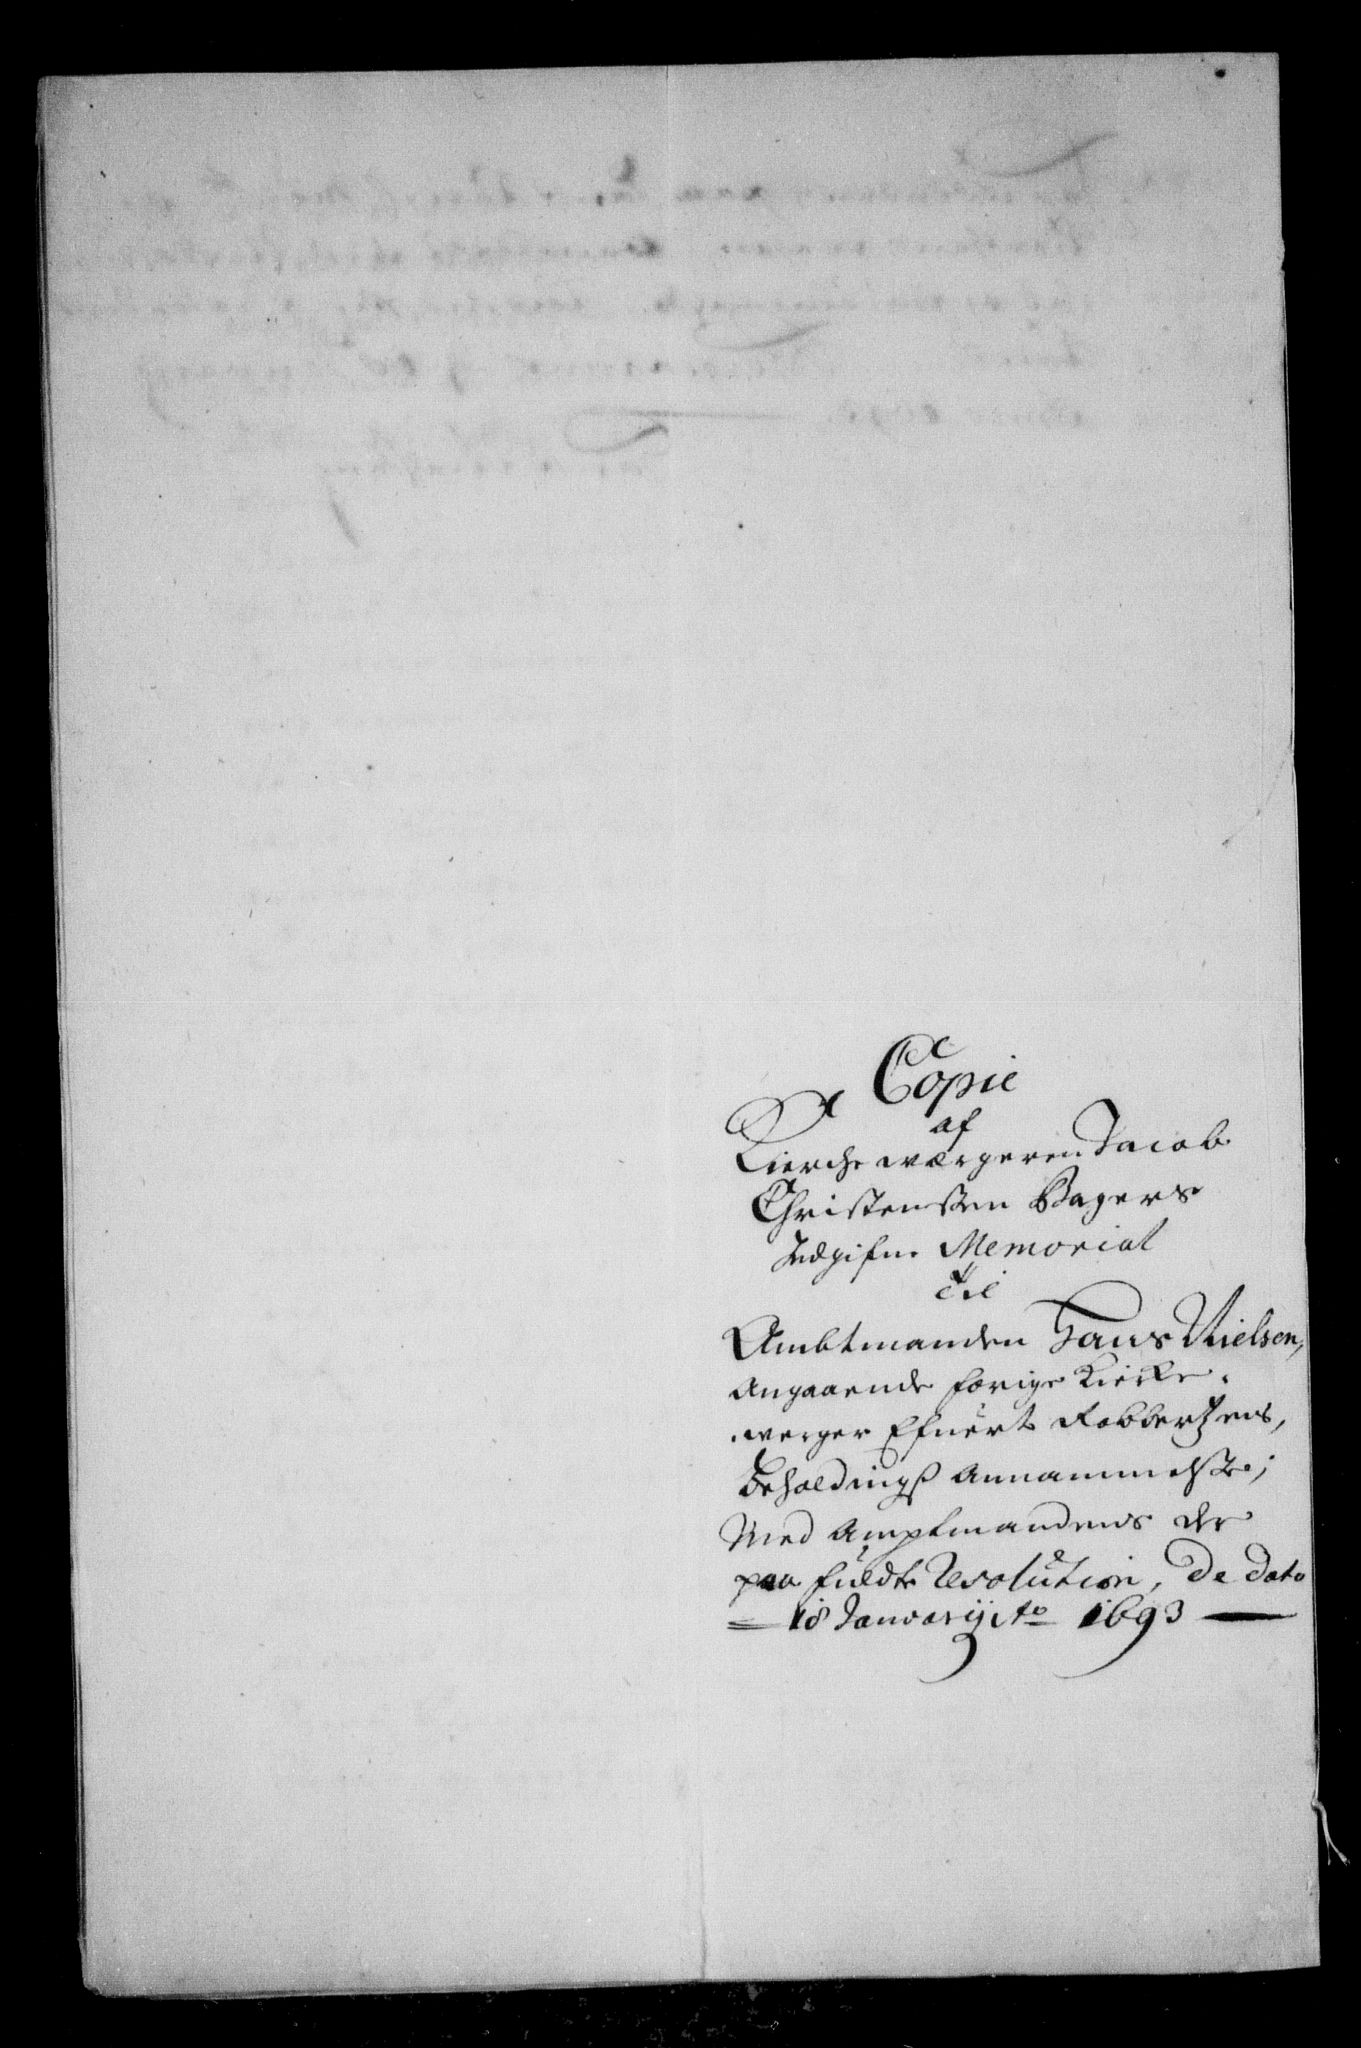 Copie
af
Kierche wærgeren Jacob
Christensen Bagers
Indgifne Memorial
til
Ambtmanden Hans Nielsen,
Angaaende forige Kierke-
werger Efuert Robbertzens,
Beholdingß Annammelse;
Med Amptmandens der
paa fuldte Resolution, De Dato
18 Januarij Ao 1693